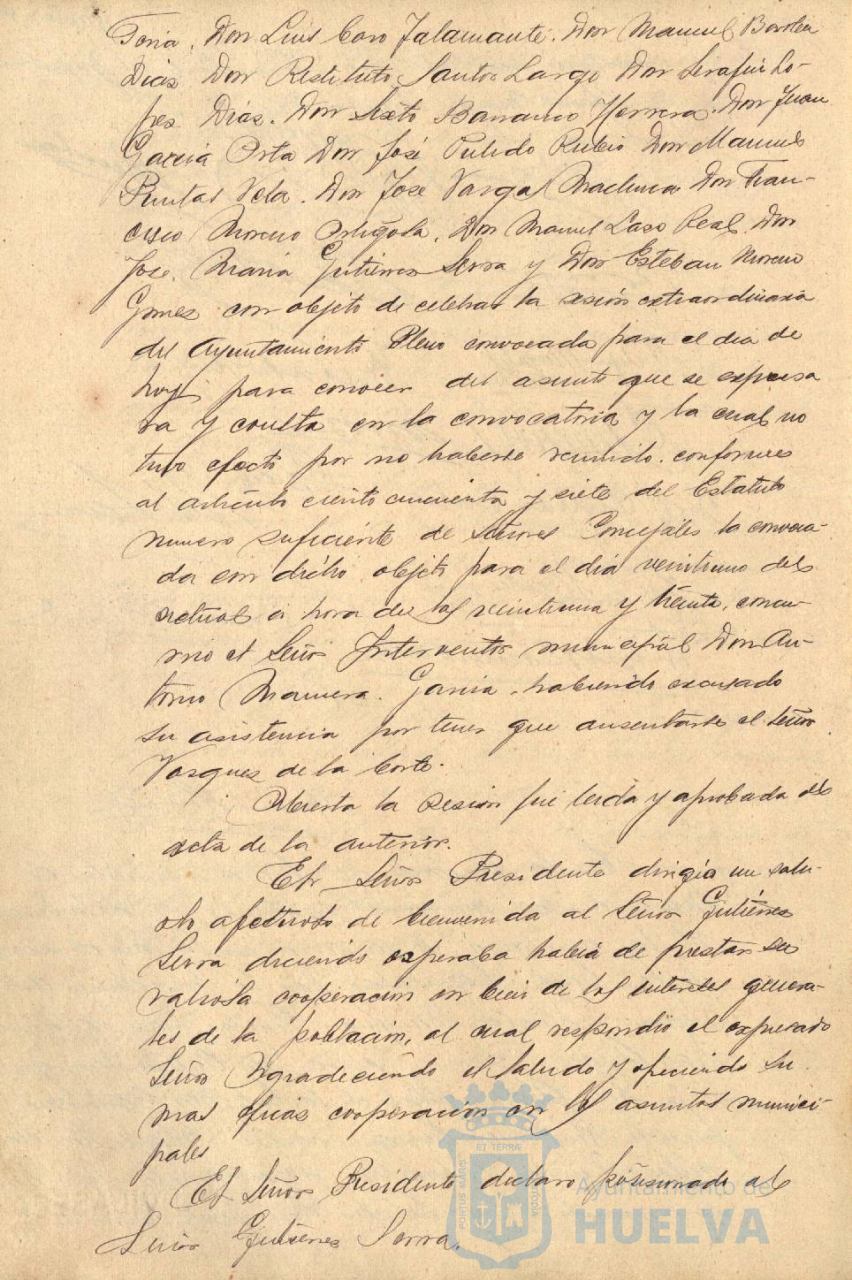 Toria. Don Luis Caro Jalamante. Don Manuel Borolea
Dias Don Restituto Santos Largo Don Serafin Lo-
pez Dias. Don Sixto Barranco Herrera. Don Juan
Garcia Orta Don José Pulido Rubio Don Manuel
Puntas Vela. Don Jose Vargas Machuca Don Fran-
cisco Moreno Ortigosa. Don Manuel Laso Real. Don
Jose Maria Gutiérrez Serra y Don Esteban Moreno
Gomez con objeto de celebrar la sesión extraordinaria
del Ayuntamiento Pleno convocada para el dia de
hoy para conocer del asunto que se expresa
ra y consta en la convocatoria y la cual no
tuvo efecto por no haberse reunido conforme
al artículo ciento cincuenta y siete del Estatuto
numero suficiente de Señores Concejales la convoca-
da con dicho objeto para el día veintiuno del
actual a hora de las veintiuna y treinta, concu-
rrio el Señor Interventor municipal Don An-
tonio Garcia. habiendo excusado
su asistencia por tener que ausentarse el Señor
Vazquez de la Corte.
Abierta la sesión fue leida y aprobada el
acta de la anterior.
El Señor Presidente dirigio un salu-
do afectuoso de bienvenida al Señor Gutiérrez
Serra diciendo esperaba habia de prestar su
valiosa cooperación en bien de los intereses genera-
les de la población, al cual respondió el expresado
Señor agradeciendo el saludo y ofreciendo su
mas eficas cooperación en los asuntos munici-
pales
El Señor Presidente declaro posesionado al
Señor Gutierrez Serra.
ET TERRAE
PORTUS MARIS
CUSTODIA
Ayuntamiento de
HUELVA